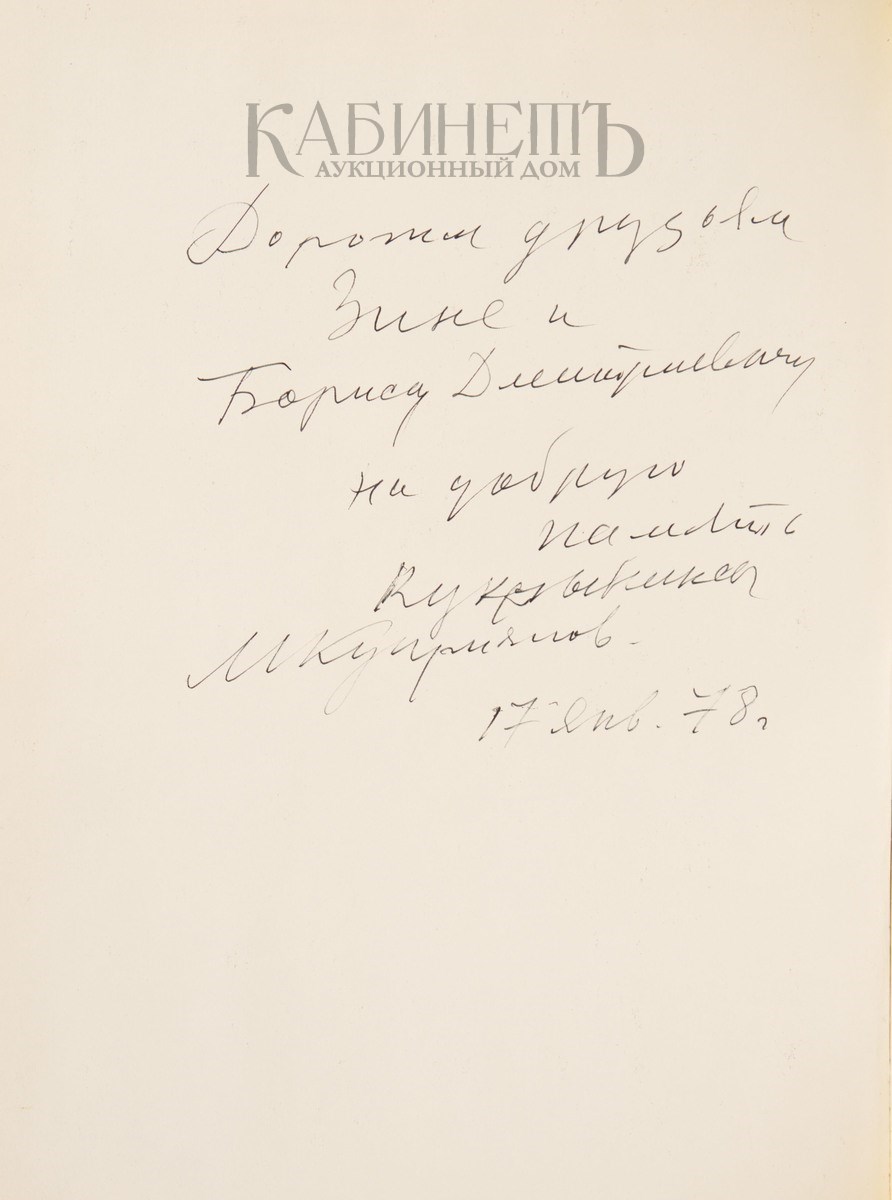 КАБИНЕТЪ
АУКЦИОННЫЙ ДОМ
Дорогим друзьям
Зине и
Борису Дмитриевичу
на добрую
память
Кукрыниксы
М Куприянов.
17 янв. 78 г